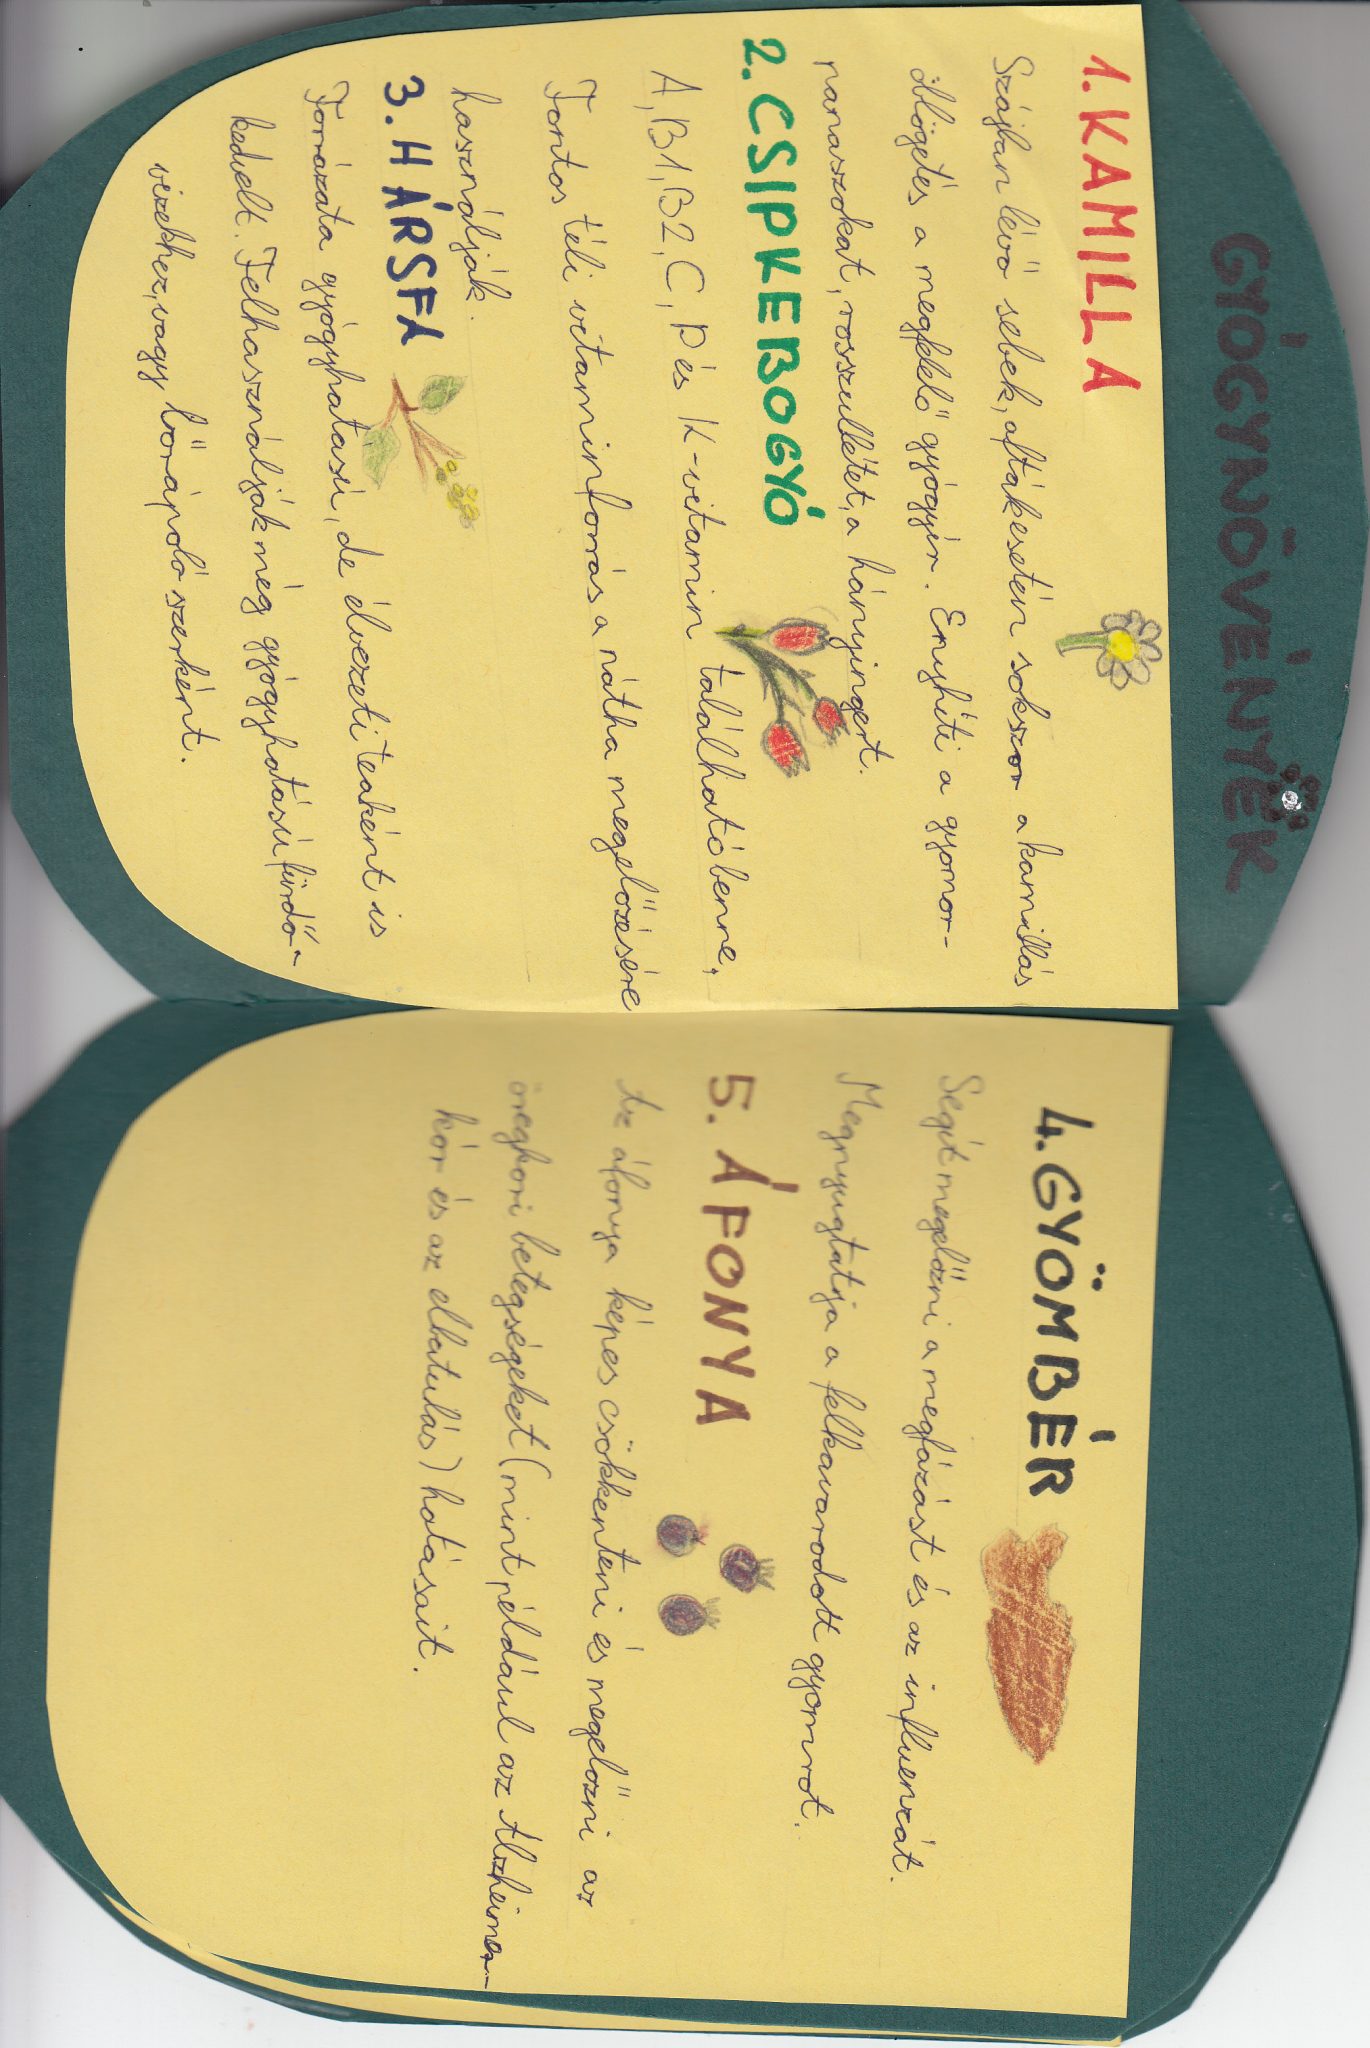 GYÓGYNÖVÉNYEK
1. KAMILLA
Szájban lévő sebek, afták esetén sokszor a kamillás
öblögetés a megfelelő gyógyír. Enyhíti a gyomor-
panaszokat, rosszullétet, a hányingert.
2. CSIPKEBOGYÓ
A, B1, B2, C, P és K-vitamin található benne,
Fontos téli vitaminforrás a nátha megelőzésére
használják.
3. HÁRSFA
Forrázata gyógyhatású, de élvezeti teaként is
kedvelt. Felhasználják még gyógyhatású fürdő-
vizekhez, vagy bőrápoló szerként.
4. GYÖMBÉR
Segít megelőzni a megfázást és az influenzát.
Megnyugtatja a felkavarodott gyomrot.
5. ÁFONYA
Az áfonya képes csökkenteni és megelőzni az
öregkori betegségeket (mint például az Alzheimer-
kór és az elbutulás) hatásait.